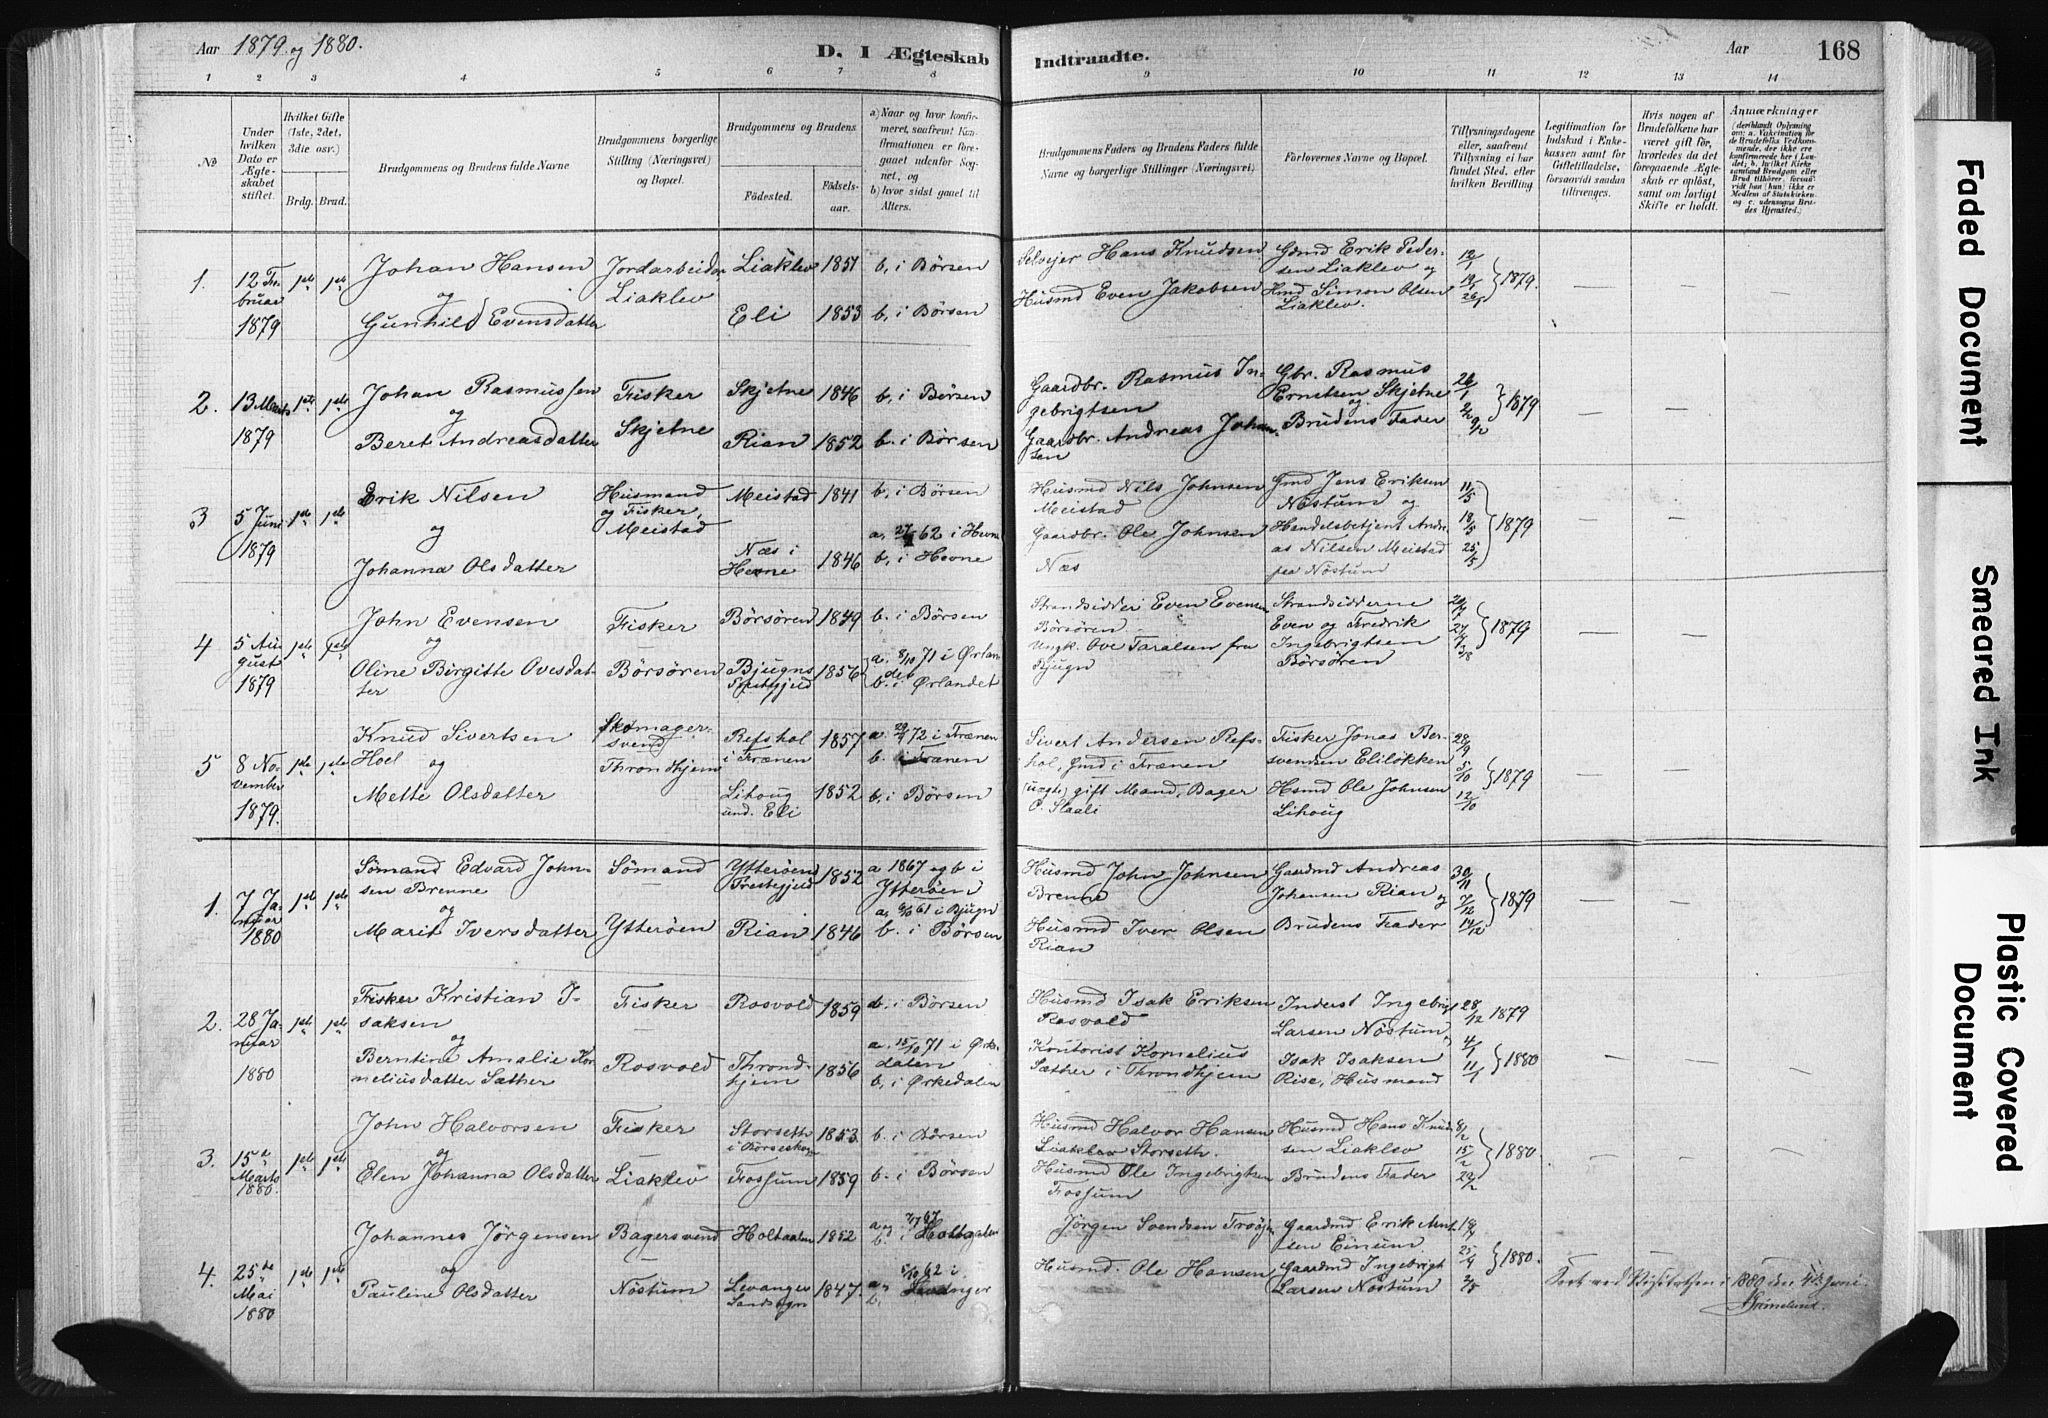 Aar 1879 og 1880.
D. I Ægteskab Indtraadte.
Aar 168
1 2 3 4 5 6 7 8 9 10 11 12 13 14
№
Under hvilken Dato er Ægteskabet stiftet.
Hvilket Gifte (1ste, 2det, 3die osv.)
Brdg. Brud.
Brudgommens og Brudens fulde Navne
Brudgommens borgerlige Stilling (Næringsvei) og Bopæl.
Brudgommens og Brudens
Fødested.
Fødselsaar.
a) Naar og hvor konfirmeret, saafremt Konfirmationen er foregaaet udenfor Sognet, og
b) hvor sidst gaaet til Alters.
Brudgommens Faders og Brudens Faders fulde Navne og borgerlige Stillinger (Næringsvei)
Forlovernes Navne og Bopæl.
Tillysningsdagene eller, saafremt Tillysning ei har fundet Sted, efter hvilken Bevilling.
Legitimation for Indskud i Enkekassen samt for Giftetilladelse, forsaavidt saadan tiltrænges.
Hvis nogen af Brudefolkene har været gift før, hvorledes da det foregaaende Ægteskab er opløst, samt om lovligt Skifte er holdt.
Anmærkninger
1. 12 Februar 1879 1ste 1ste
Johan Hansen
og
Gunhild Evensdatter
Jordarbeider
Liaklev
Liaklev 1851 b, i Børsen
Eli 1853 b, i Børsen
Selveier Hans Knudsen
Husmd Even Jakobsen
Gdmd Erik Pedersen Liaklev og
Hmd Simon Olsen Liaklev.
12/1 19/1 26/1 } 1879. — — —
2. 13 Marts 1879 1ste 1ste
Johan Rasmussen
og
Beret Andreasdatter
Fisker
Skjetne
Skjetne 1846 b, i Børsen
Rian 1852 b. i Børsen
Gaardbr. Rasmus Ingebrigtsen
Gaardbr. Andreas Johansen
Gbr. Rasmus Ernstsen Skjetne
og
Brudens Fader
26/1 2/2 9/2 } 1879 — — —
3 5 Juni 1879 1ste 1ste
Erik Nilsen
og
Johanna Olsdatter
Husmand og Fisker, Meistad
Meistad 1841 b, i Børsen
Næs i Hevne 1846 62 i Hevne
b, i Hevne
Husmd Nils Johnsen Meistad
Gaardbr. Ole Johnsen Næs
Gmd Jens Eriksen Nöstum og
Handelsbetjent Andreas Nilsen Meistad paa Nöstum
11/5 18/5 25/5 } 1879 — — —
4 5 August 1879 1ste 1ste
John Evensen
og
Oline Birgitte Ovesdatter
Fisker
Börsören
Börsören 1849 b. i Børsen
Bjugns Prestegjeld 1856 a. 8/10 71 i Ørlandet
b. i Ørlandet
Strandsidder Even Evensen Börsören
Ungk. Ove Taralsen fra Bjugn
Strandsidderne Even og Fredrik Ingebrigtsen Börsören
20/7 27/7 3/8 } 1879 — — —
5 8 November 1879. 1ste 1ste
Knud Sivertsen Hoel
og
Mette Olsdatter
Skomagersvend
Throndhjem
Refshol i Frænen 1857 72 i Frænen
b. i Frænen
Lihoug und. Eli 1852 b, i Børsen
Sivert Andersen Refshol, Gmd i Frænen
(uægte) gift Mand, Bager O. Staali
Fisker Jonas Bersvendsen Eliløkken
Hsmd Ole Johnsen Lihoug
28/9 5/10 12/10 } 1879 — — —
1. 7 Januar 1880 1ste 1ste
Sömand Edvard Johnsen Brenne
og
Marit Iversdatter
Sömand
—
Ytterøen
Ytterøens Prestegjeld 1852 a 1867 og b i Ytterøen
Rian 1846 61 i Bjugn
b. i Børsen
Husmd John Johnsen Brenne
Husmd Iver Olsen Rian
Gaardmd Andreas Johansen Rian og
Brudens Fader
30/11 7/12 14/12 } 1879 — — —
2. 28 Januar 1880 1ste 1ste
Fisker Kristian Isaksen
og
Berntine Amalie Korneliusdatter Sæther
Fisker
—
Rosvold
Rosvold 1859 b. i Børsen
Throndhjem 1856 a. 15/10 71 i Ørkedalen
b, i Ørkedalen
Husmd Isak Eriksen Rosvold
Kontorist Kornelius Sæther i Throndhjem
Inderst Ingebrigt Larsen Nöstum
Isak Isaksen Rise, Husmand
28/12 1879
4/1 11/1 } 1880 — — —
3. 15de Marts 1880. 1ste 1ste
John Halvorsen
og
Elen Johanna Olsdatter
Fisker
—
Liaklev
Storseth i Børseskogn 1853 b. i Børsen
Fossum 1859 b. i Børsen
Husmd Halvor Hansen Liaklev Storseth.
Husmd Ole Ingebrigtsen Fossum
Husmd Hans Knudsen Liaklev
Brudens Fader
8/2 15/2 22/2 } 1880. — — —
4. 25de Mai 1880 1ste 1ste
Johannes Jörgensen
og
Pauline Olsdatter
Bagersvend
Nöstum
Holtaalen 1852 a og b. i Holtaalen
Levanger Landsogn 1847. 62 i Levanger
Jörgen Svendsen
Husmd. Ole Hansen
Gaardmd Erik Arntsen Einum.
Gaardmd Ingebrigt Larsen Nöstum
18/4 25/4 2/5 } 1880.
ved Visitatsen i 1880 den 4de Juni
Grimelund.
Faded Document
Smeared Ink
Plastic Covered Document